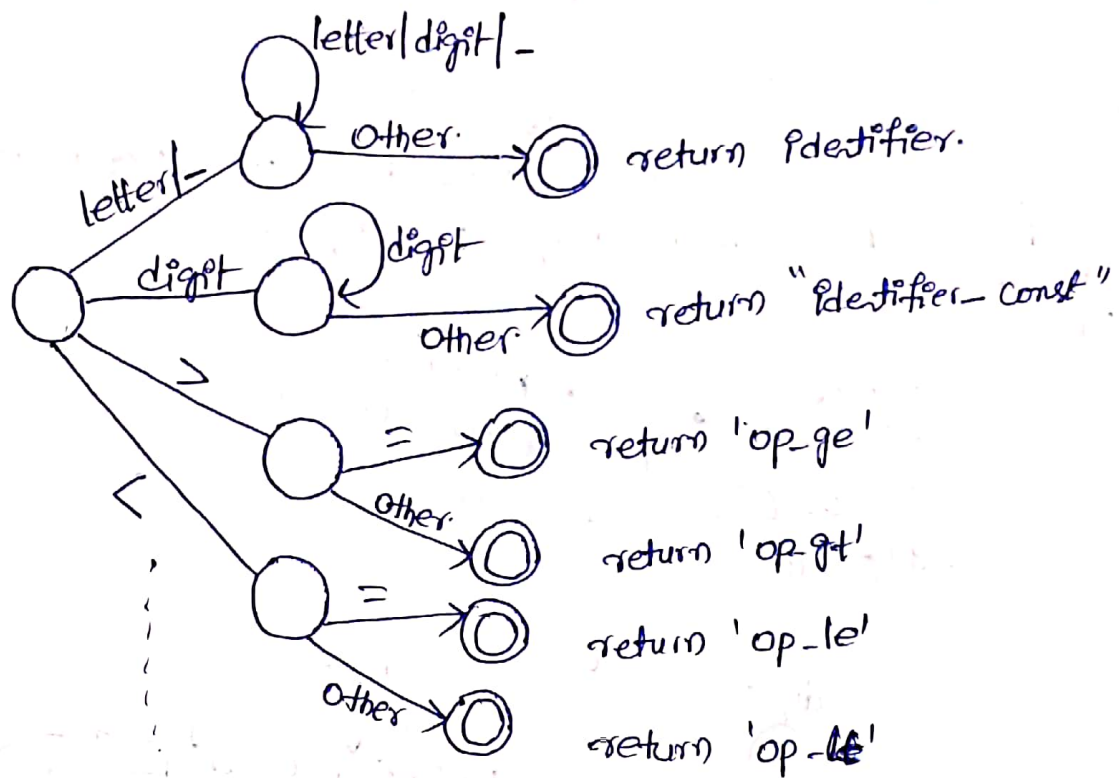 letter|digit|_
letter|_
Other.
return identifier.
digit
digit
Other.
return "identifier_const"
>
=
return 'op_ge'
<
Other.
return 'op_gt'
=
return 'op_le'
Other
return 'op_